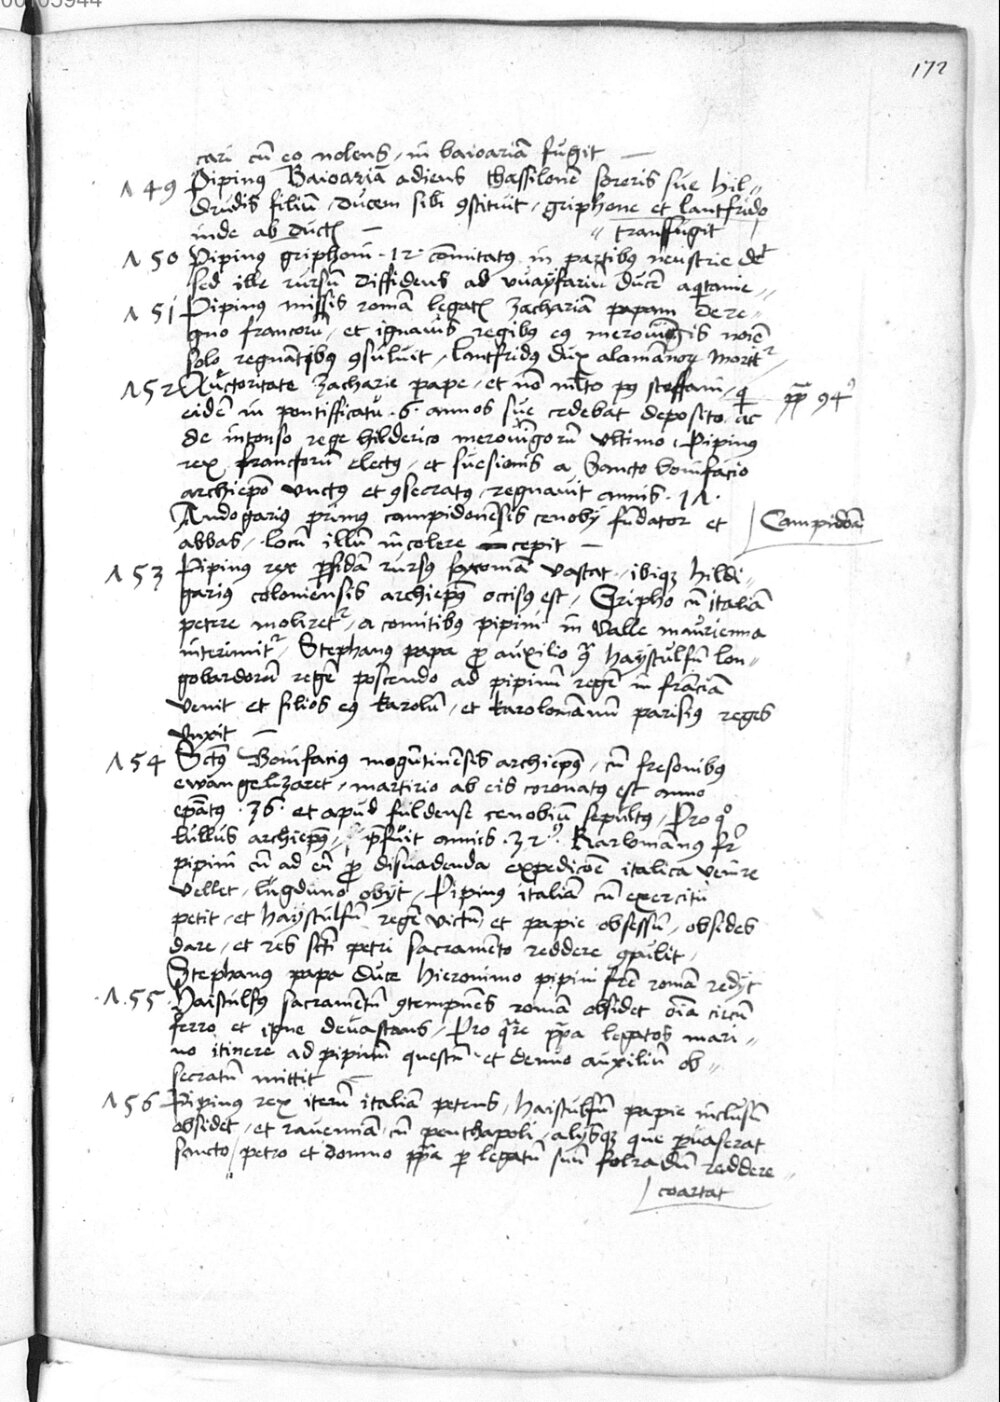 172
cari cū eo nolens, in baioariā fugit
749 Pipinus Baioariā adiens thassilonē sororis sue hil„
drudis filium, ducem sibi 9stituit, griphone et lantfrido
inde ab ductis
transfugit
750 Pipinus griphoni ·12· comitatus in partibus neustrie det
sed ille rursū diffidens ad vuayfariū ducē aqitanie„
751 Pipinus missis romā legatis Zachariā papam de re„
gno francorū, et ignauis regibus eius merouingis noīe
solo regnātibus 9suluit, lantfridus dux alamānorum moritur
752 Auctoritate Zacharie pape, et nō multo post steffani, q
pp 94
eidē in pontifficatu ·6· annos sue cedebat deposito, ac
de intonso rege hilderico merouingorū vltimo, Pipinus
rex francorum electus, et suesionis a Sancto bonifacio
archiepō vnctus et 9secratus, regnauit annis ·17·
Andogarius primus campidonēsis cenobij fūdator et
Campidōn
abbas, locū illū incolere cepit
753 Pipinus rex perfidā rursus saxoniā vastat, ibique hildi„
garius coloniensis archiepus occisus est, Gripho cū italiā
petere moliretur, a comitibus pipini in valle maurienna
interimitur, Stephanus papa pro auxilio 9tra haystulfū lon„
gobardorū regē poscendo ad pipinū regē in franciā
venit et filios eius karolū, et karolomānum parisius reges
vnxit
754 Sctūs Bonifacius mogūtinēsis archiepus, cū fresonibus
ewangelizaret, martirio ab eis coronatus est anno
epātus ·36· et apud fuldense cenobiū sepultus, Pro quo
lullus archiepus, prefuit annis ·32· Karlomānus frater
pipini cū ad eū pro disuadenda expedicōe italica venire
vellet, lugduno obijt, Pipinus italiā cū exercitu
petit, et haystulfū regē victū et papie obsessū, obsides
dare, et res scti petri sacramēto reddere 9pulit,
Stephanus papa duce hieronimo pipini frē romā redijt
755 Haistulfus sacramētū 9tempnēs romā obsidet oīa circū
ferro et igne deuastans, Pro qure ppa legatos mari„
no itinere ad pipinū questū et denuo auxiliū ob„
secratū mittit
756 Pipinus rex iterū italiā petens, haistulfū papie inclusū
obsidet, et rauennā cū penthapoli, alijsque que peruaserat
sancto petro et domno ppa per legatū suū folradū reddere„
coartat